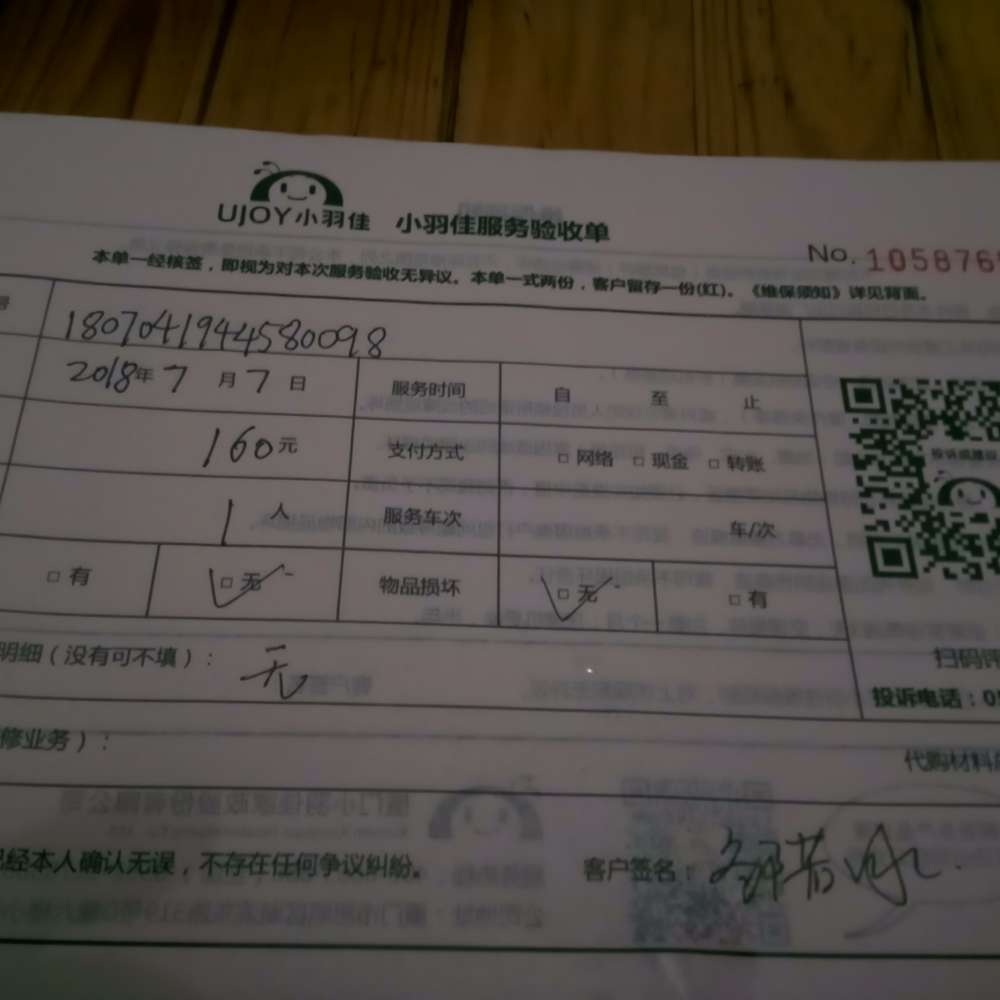 UJOY小羽佳 小羽佳服务验收单
No. 1058769
本单一经核签，即视为对本次服务验收无异议。本单一式两份，客户留存一份(红)。《维保须知》详见背面。
号 1807041944580098
2018年7月7日 服务时间 自 至 止
160元 支付方式 □网络 □现金 □转账
1人 服务车次 车/次
□有 □无 物品损坏 □无 □有
投诉或建议
明细（没有可不填）： 无
扫码评
投诉电话：05
修业务）：
代购材料
已经本人确认无误，不存在任何争议纠纷。 客户签名：